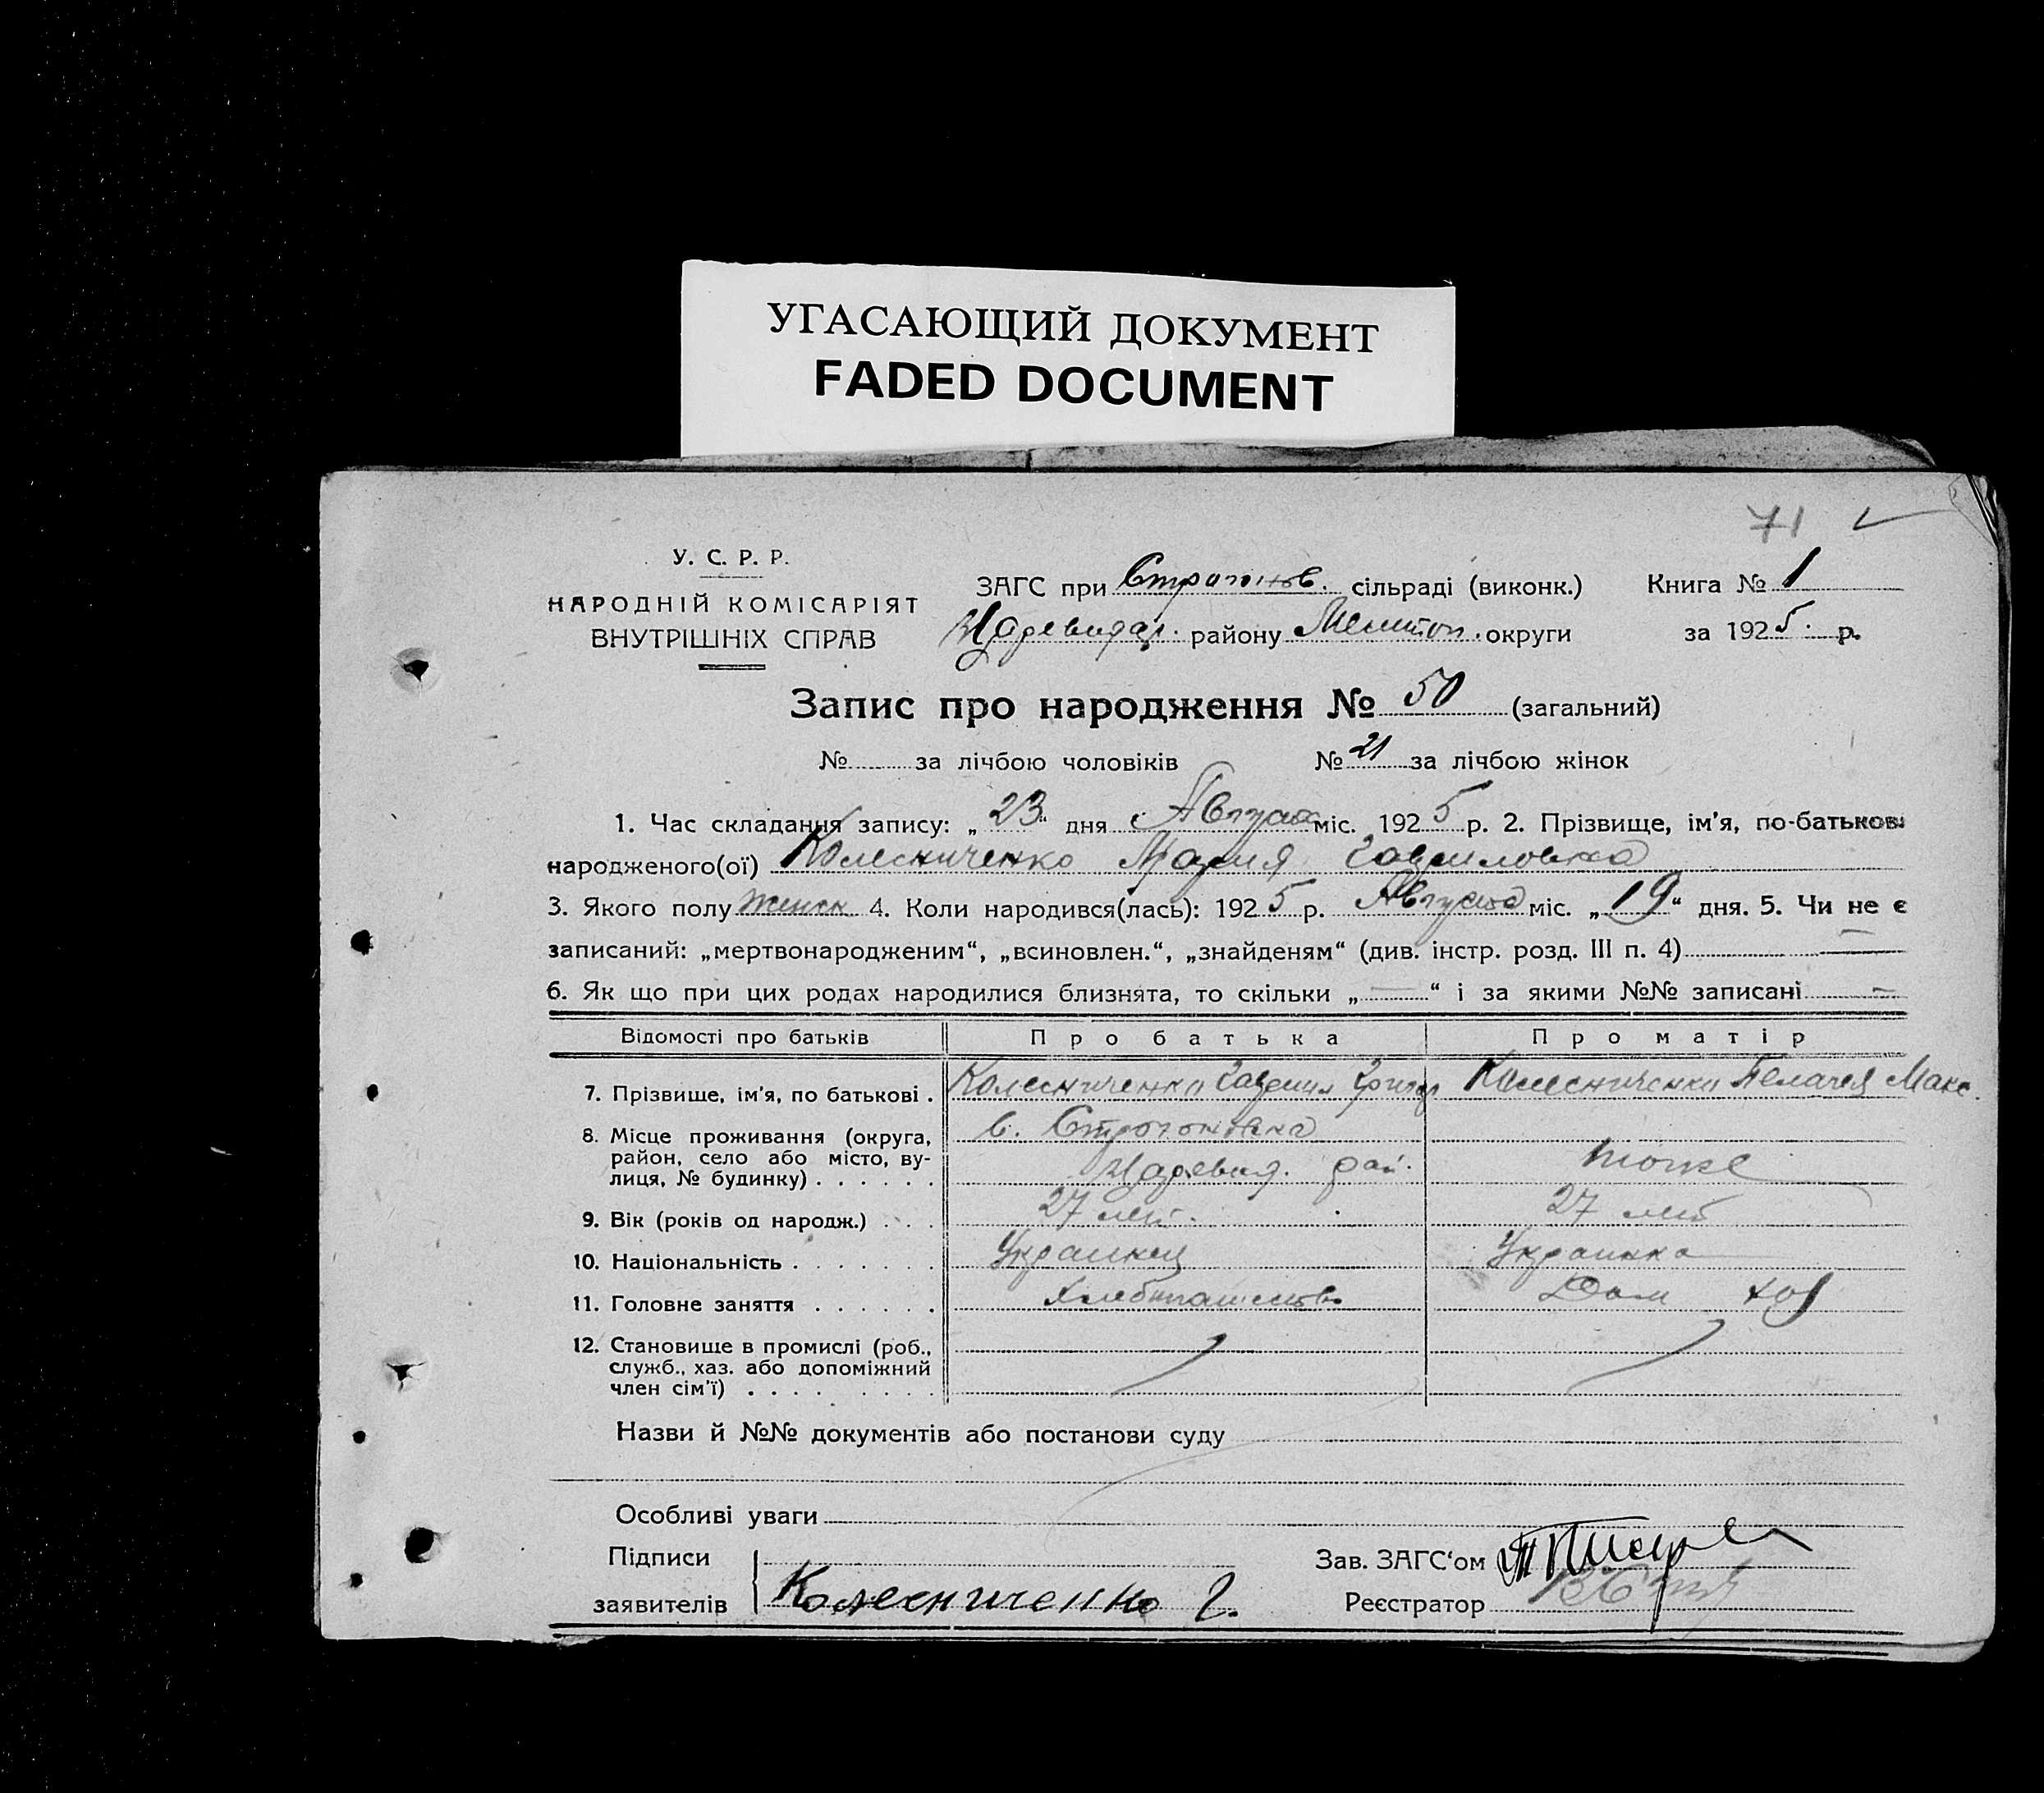 УГАСАЮЩИЙ ДОКУМЕНТ
FADED DOCUMENT
71
У. С. Р. Р.
НАРОДНІЙ КОМІСАРІЯТ
ВНУТРІШНІХ СПРАВ
ЗАГС при Строганов. сільраді (виконк.) Книга № 1
району Мелитоп. округи за 1925 р.
Запис про народження № 50 (загальний)
№ за лічбою чоловіків № 21 за лічбою жінок
1. Час складання запису: „23“ дня Август міс. 1925 р. 2. Прізвище, ім'я, по-батькові
народженого(ої) Колесниченко Мария Гавриловна
3. Якого полу женск 4. Коли народився(лась): 1925 р. Августа міс. „19“ дня. 5. Чи не є
записаний: „мертвонародженим“, „всиновлен.“, „знайденям“ (див. інстр. розд. III п. 4) —
6. Як що при цих родах народилися близнята, то скільки „—“ і за якими №№ записані —
Відомості про батьків Про батька Про матір
7. Прізвище, ім'я, по батькові . Колесниченко Гавриил Григор Колесниченко Пелагея Макс.
8. Місце проживання (округа, с. Строгоновка
район, село або місто, ву- Царевид. рай. тоже
лиця, № будинку) . . . . . .
9. Вік (років од народж.) . . . 27 лет. 27 лет
10. Національність . . . . . . . Украинец Украинка
11. Головне заняття . . . . . . Хлебопашество Дом хоз
12. Становище в промислі (роб.,
служб., хаз. або допоміжний
член сім'ї) . . . . . . . . .
Назви й №№ документів або постанови суду
Особливі уваги
Підписи Зав. ЗАГС‘ом
заявителів Колесниченко Г. Реєстратор